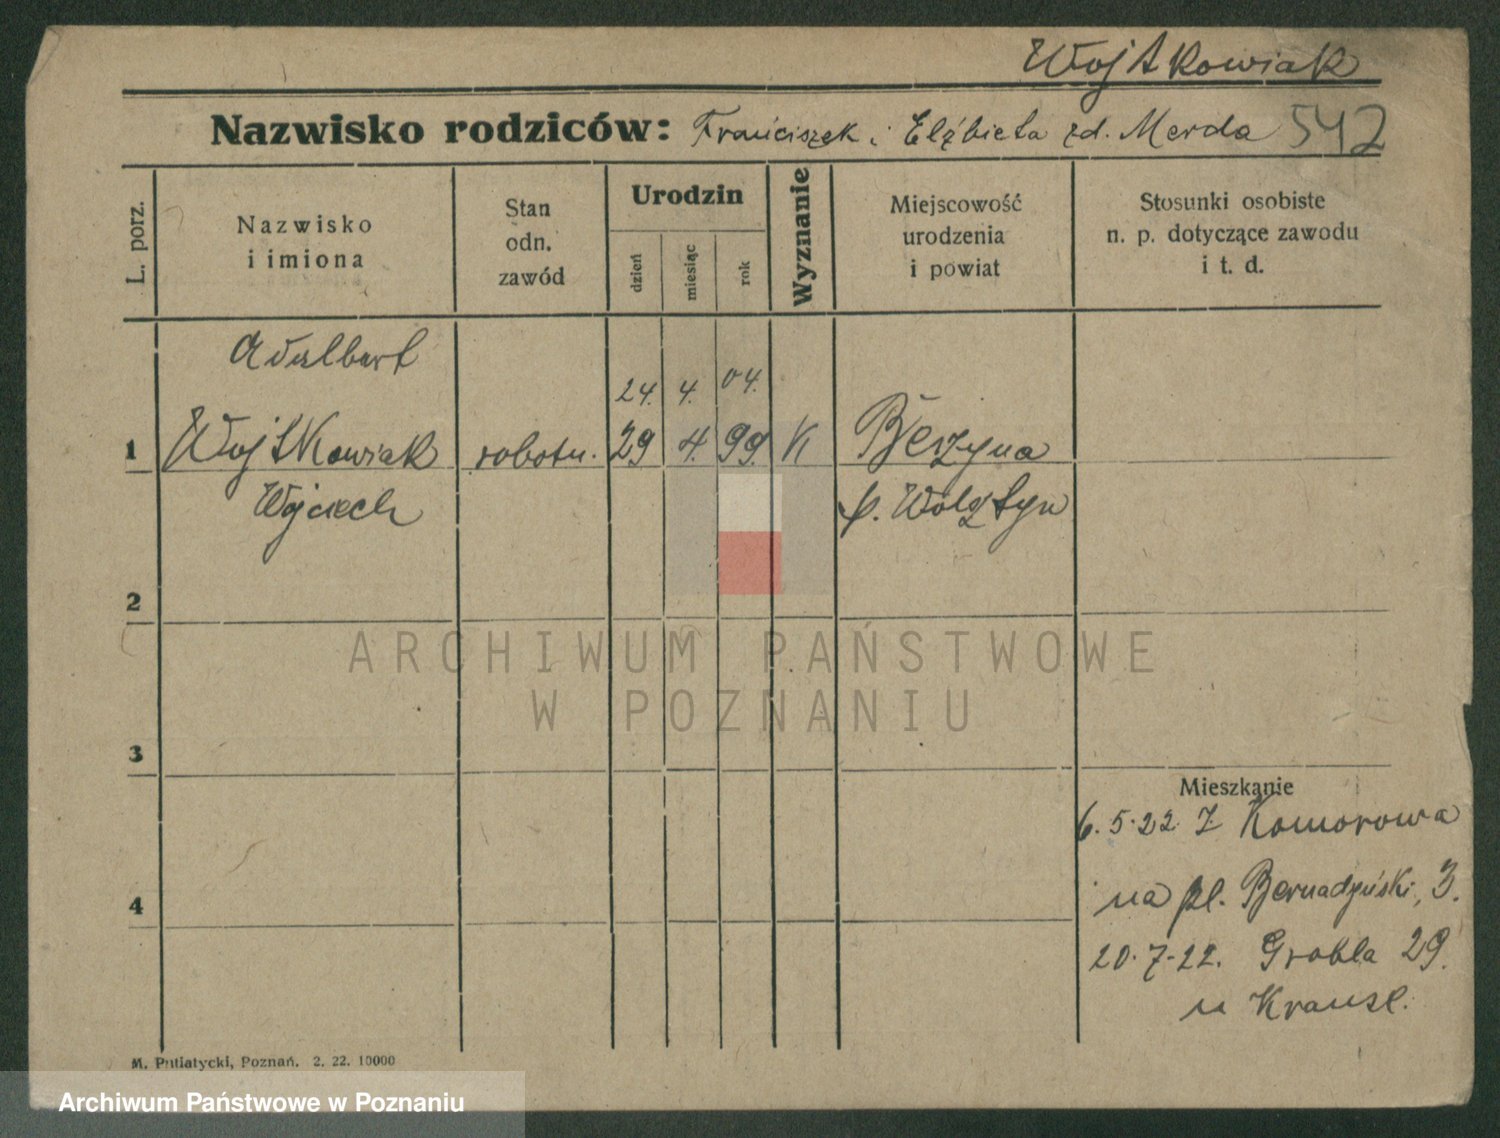 Wojtkowiak
Nazwisko rodziców: Franciszek i Elżbieta zd. Merda 542
L. porz.
Nazwisko
i imiona
Stan
odn.
zawód
Urodzin
dzień
miesiąc
rok
Wyznanie
Miejscowość
urodzenia
i powiat
Stosunki osobiste
n. p. dotyczące zawodu
i t. d.
Adalbert
24. 4. 04.
1 Wojtkowiak robotn. 29 4. 99. K Berzyna
Wojciech p. Wolsztyn
2
ARCHIWUM PAŃSTWOWE
W POZNANIU
3
Mieszkanie
6. 5. 22 z Komorowa
na pl. Bernadyński, 3.
4
20. 7. 22. Grobla 29.
u Krause.
M. Putiatycki, Poznań. 2. 22. 10000
Archiwum Państwowe w Poznaniu